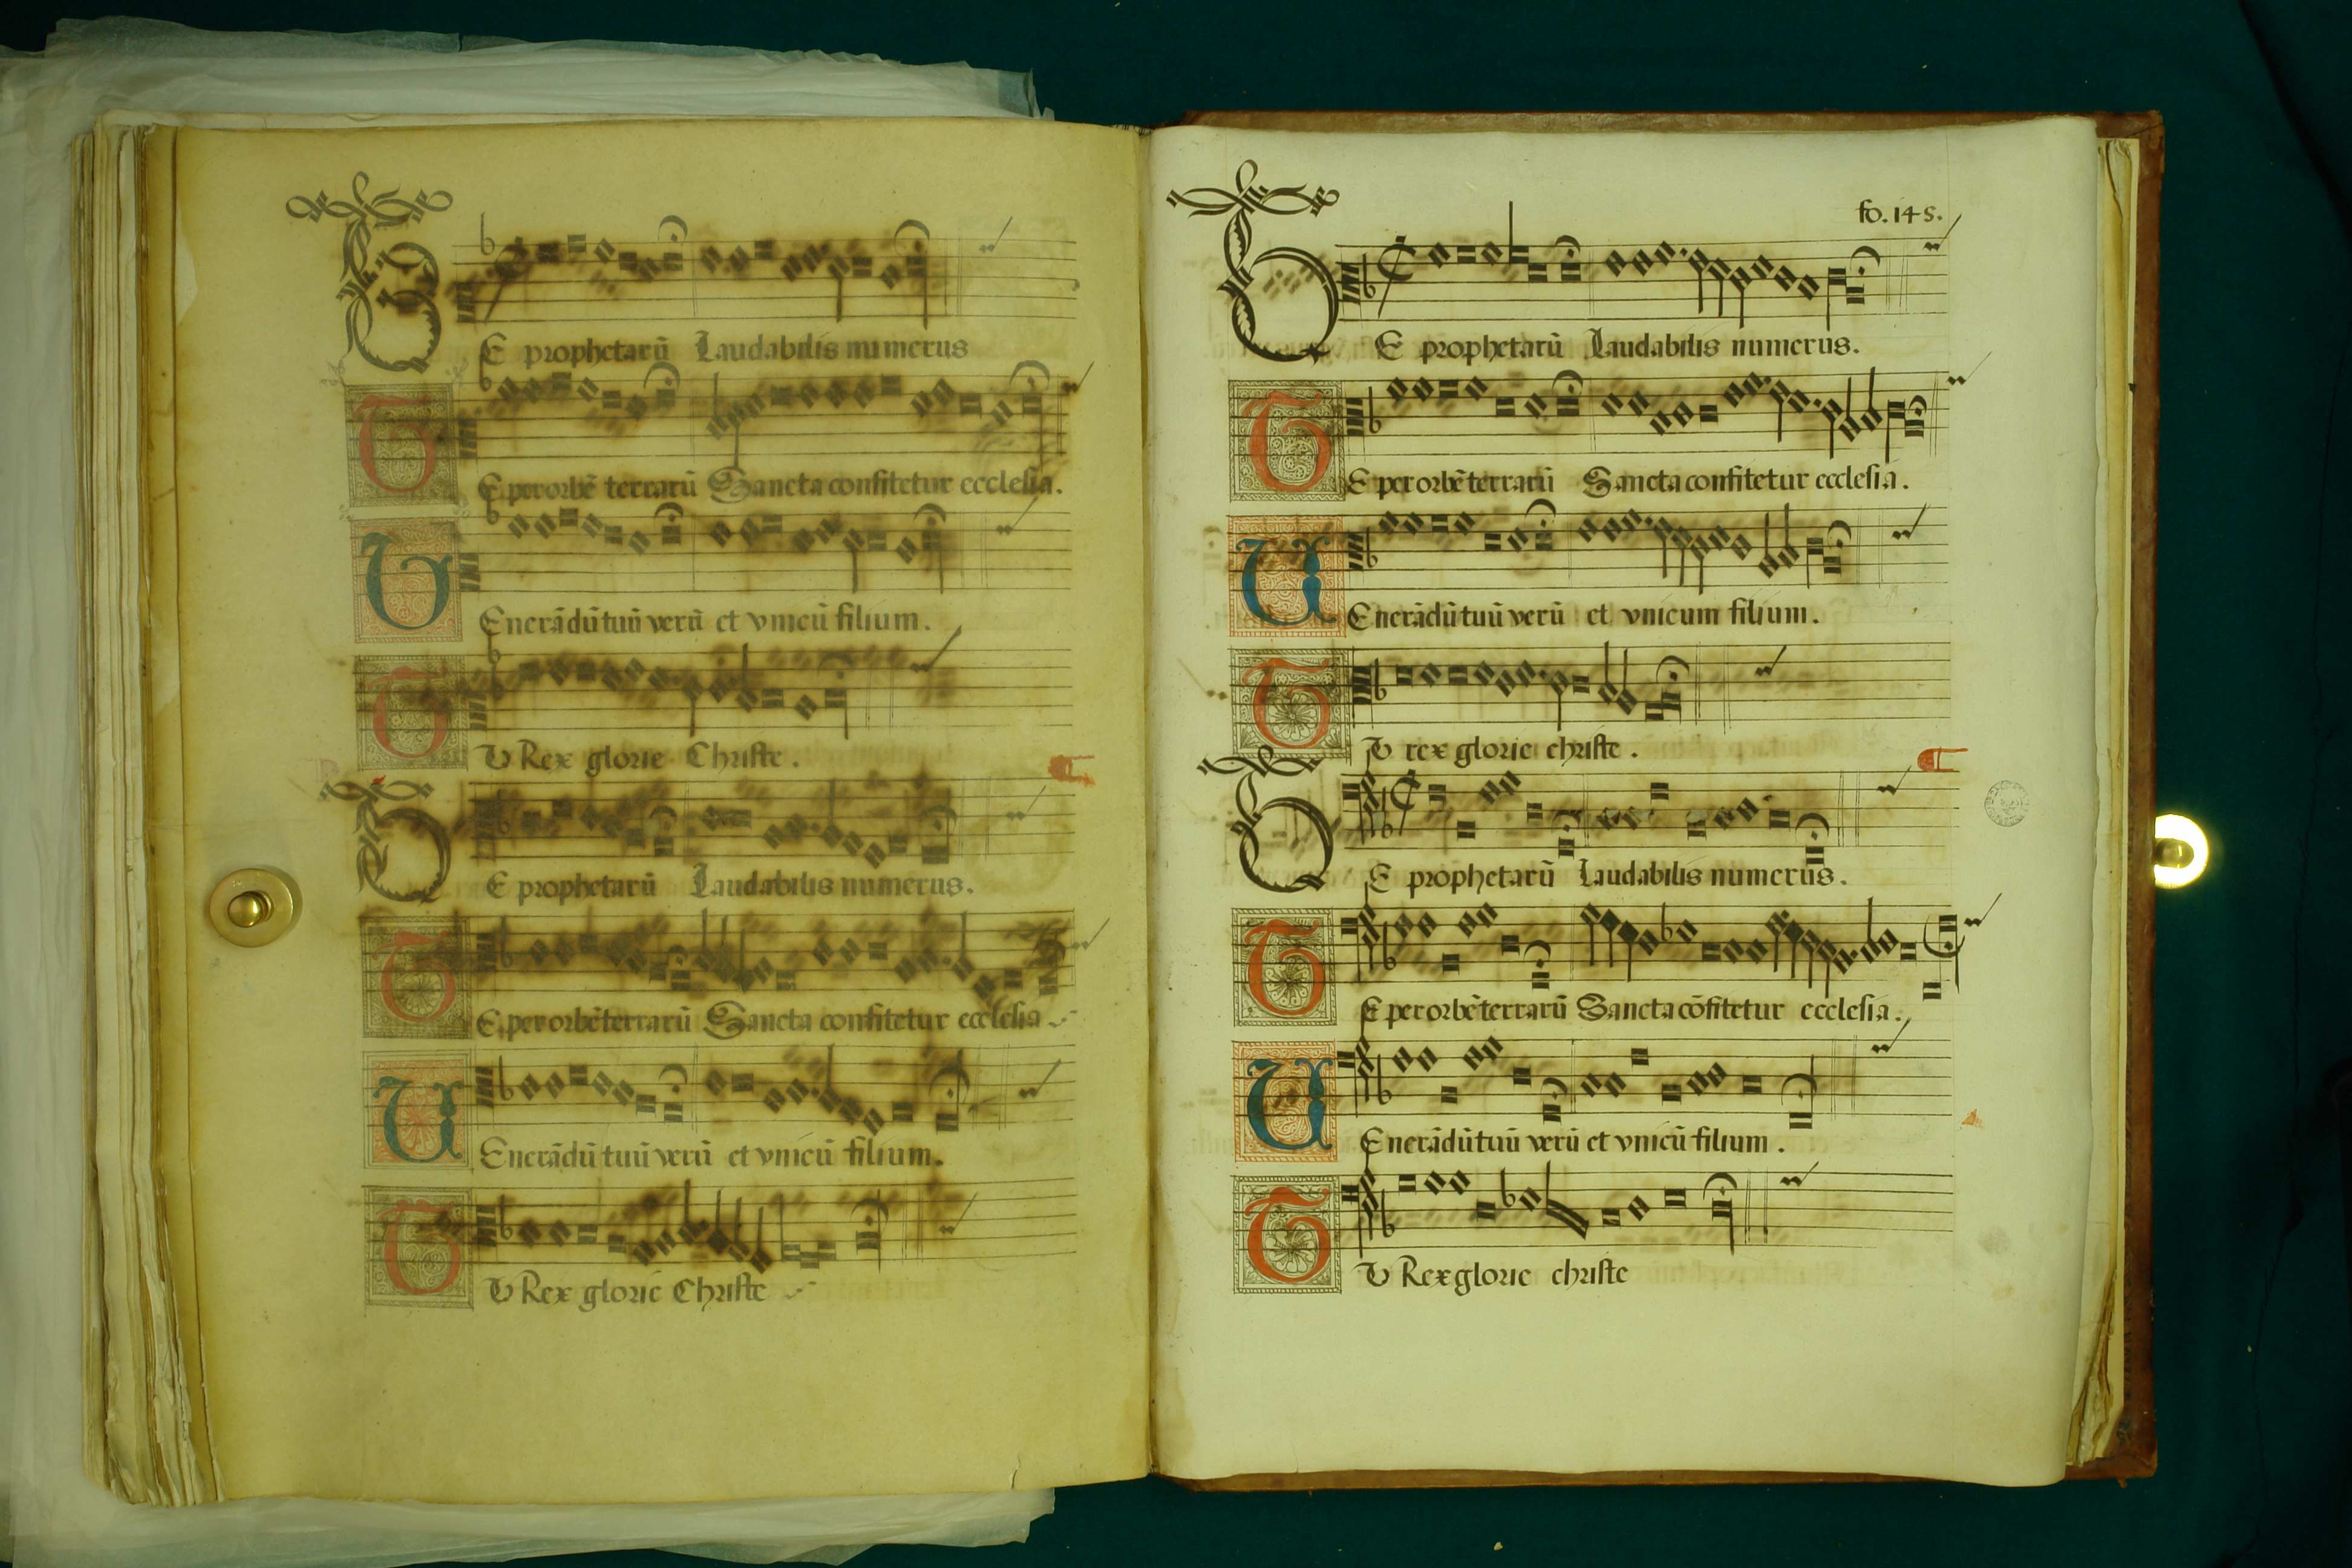 TE prophetarū Laudabilis numerus
TE per orbē terrarū Sancta confitetur ecclesia.
VEnerādū tuū verū et vnicū filium.
TV Rex glorie Christe.
TE prophetarū Laudabilis numerus.
TE per orbē terrarū Sancta confitetur ecclesia
VEnerādū tuū verū et vnicū filium.
TV Rex glorie Christe
fo. 145.
TE prophetarū Laudabilis numerus.
TE per orbē terrarū Sancta confitetur ecclesia.
VEnerādū tuū verū et vnicum filium.
TV rex glorie christe.
TE prophetarū Laudabilis numerus.
TE per orbē terrarū Sancta cōfitetur ecclesia.
VEnerādū tuū verū et vnicū filium.
TV Rex glorie christe